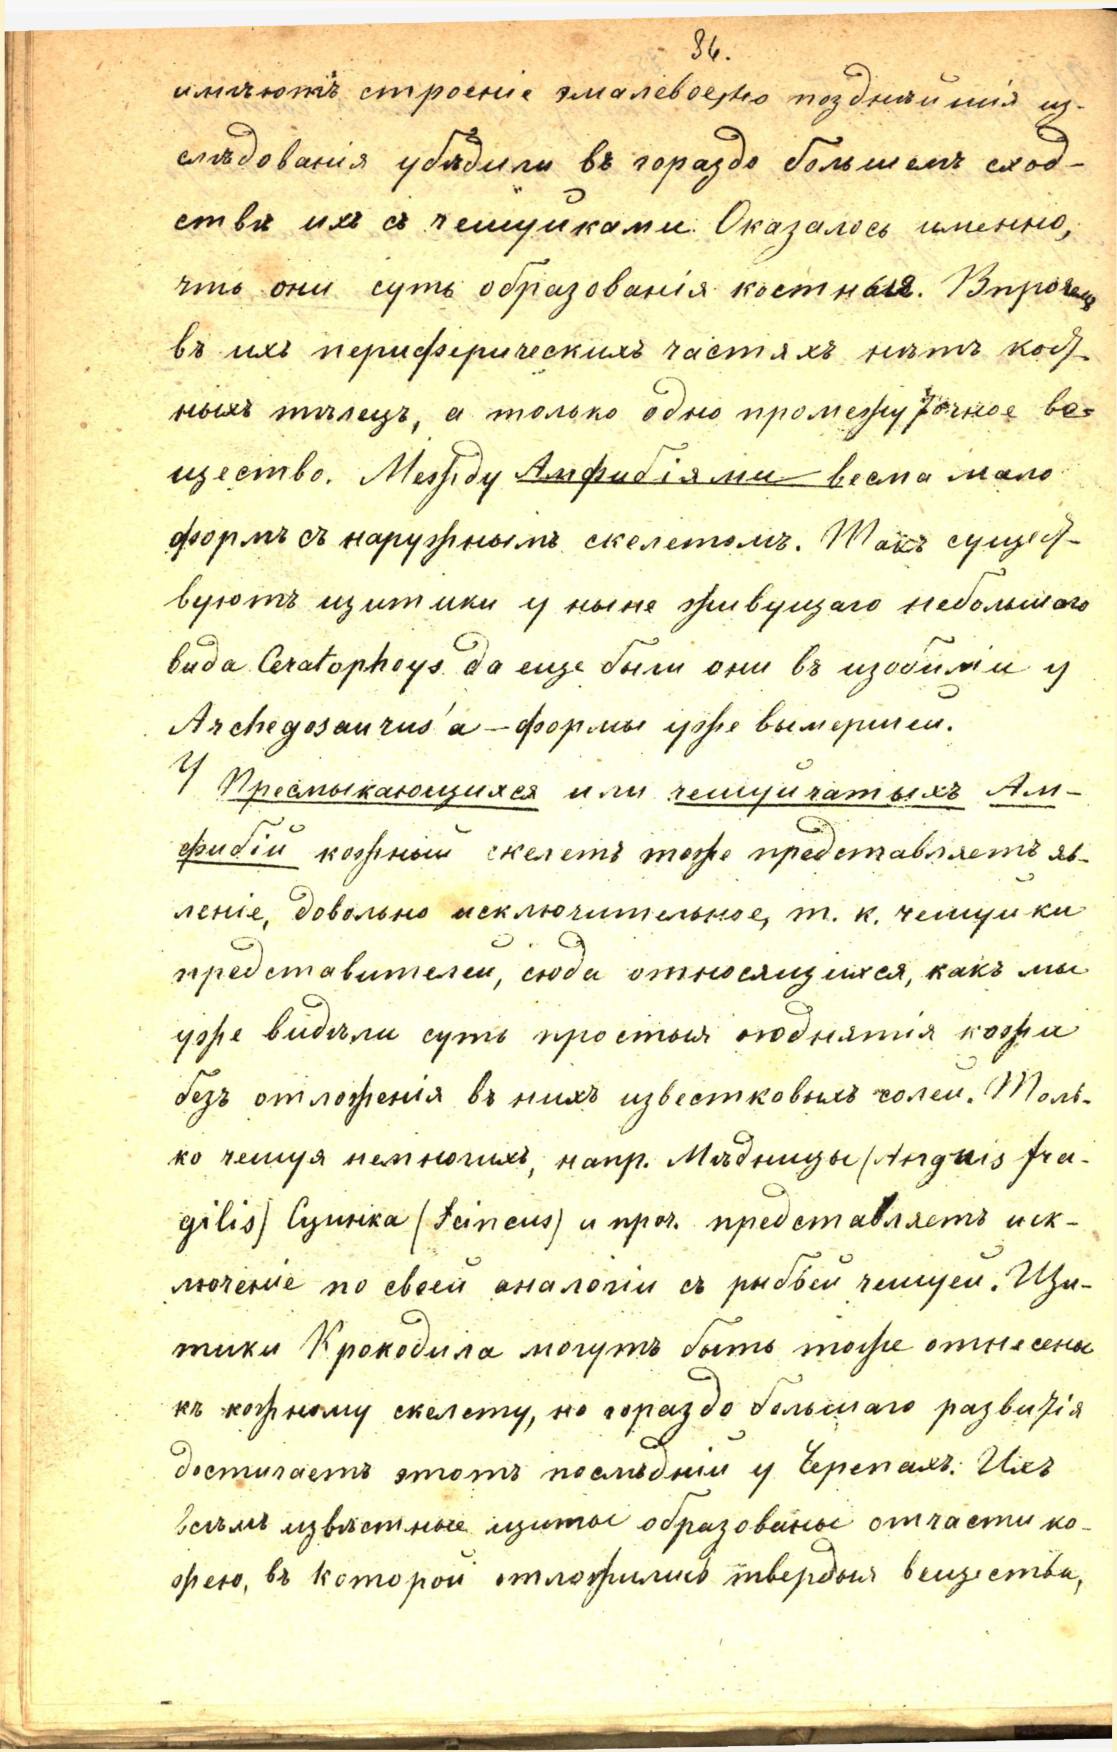 36.
имѣютъ строеніе эмалевое, но позднѣйшія из-
слѣдованія убѣдили въ гораздо большемъ сход-
ствѣ ихъ съ чешуйками. Оказалось именно,
что они суть образованія костныя. Впрочемъ
въ ихъ периферическихъ частяхъ нѣтъ кост-
ныхъ тѣлецъ, а только одно промежуточное ве-
щество. Между Амфибіями весма мало
формъ съ наружнымъ скелетомъ. Такъ сущест-
вуютъ щитики у ныне живущаго небольшаго
вида Ceratophrys да еще были они въ изобиліи у
Archegosaurus'а — формы уже вымершей.
У Пресмыкающихся или чешуйчатыхъ Ам-
фибій кожный скелетъ тоже представляетъ яв-
леніе, довольно исключительное, т. к. чешуйки
представителей, сюда относящихся, какъ мы
уже видѣли суть простыя поднятія кожи
безъ отложенія въ нихъ известковыхъ солей. Толь-
ко чешуя немногихъ, напр. Мѣдницы (Anguis fra-
gilis) Сцинка (Scincus) и проч. представляетъ иск-
люченіе по своей аналогіи съ рыбьей чешуей. Щи-
тики Крокодила могутъ быть тоже отнесены
къ кожному скелету, но гораздо большаго развитія
достигаетъ этотъ послѣдній у Черепахъ. Ихъ
всѣмъ извѣстные щиты образованы отчасти ко-
жею, въ которой отложились твердыя вещества,